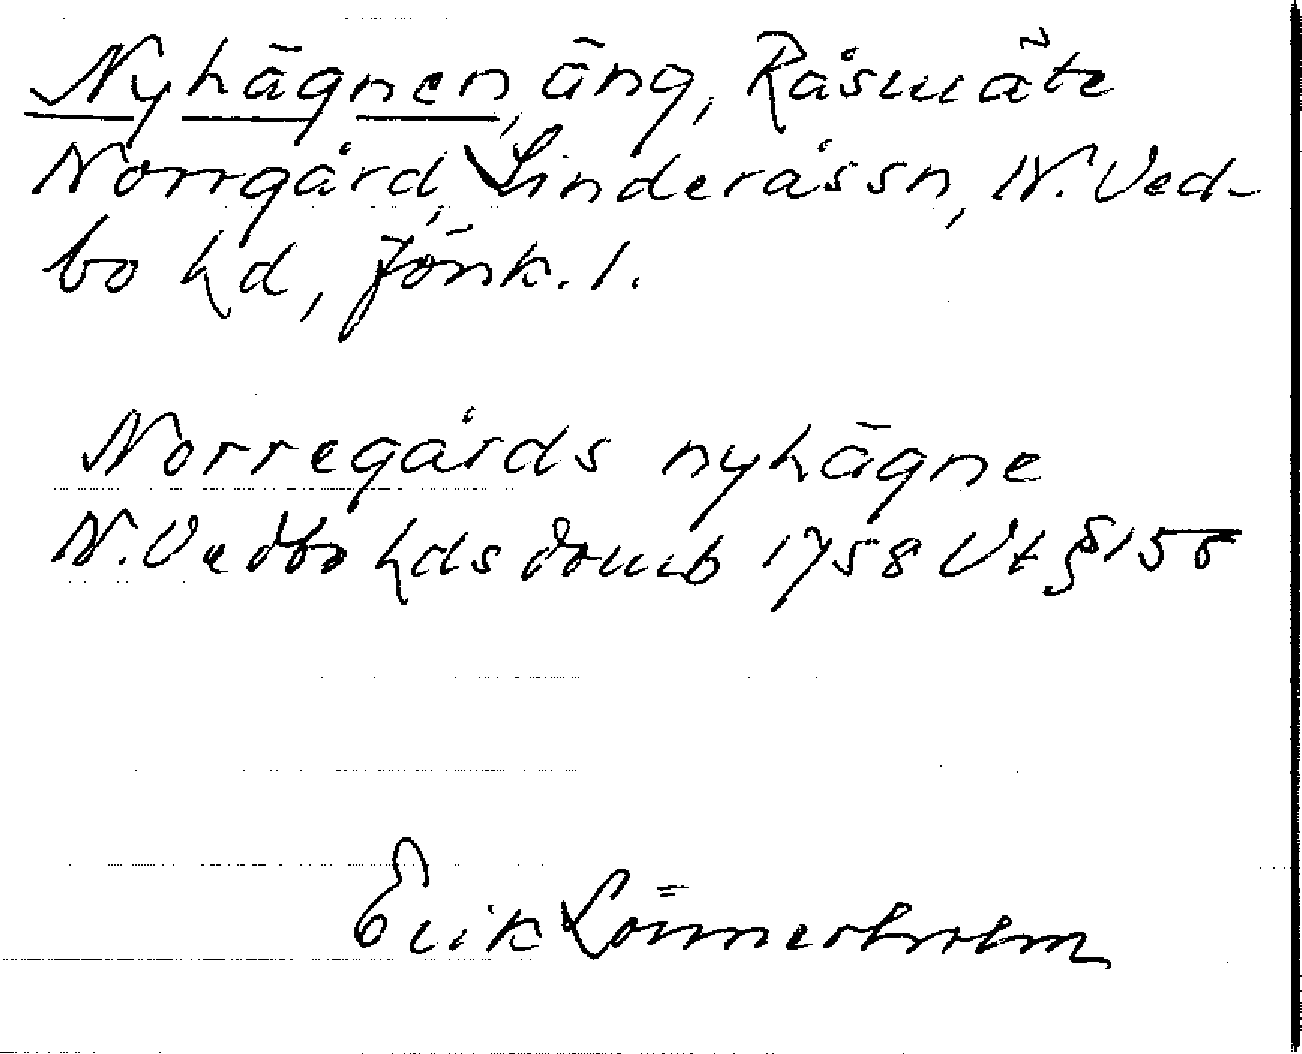 Nyhägnen, äng, Råsmäte
Norrgård, Linderås sn, N. Ved-
bo hd, Jönk. l.
Norregårds nyhägne
N. Vedbo hds domb 1758 Vt § 156
Erik Lönnerholm